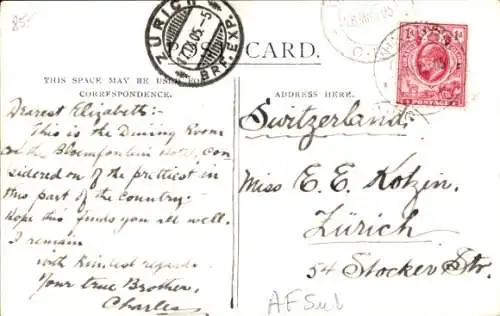 85
ZÜRICH
05.-5
BRF. EXP.
POST CARD.
THIS SPACE MAY BE USED FOR
CORRESPONDENCE.
ADDRESS HERE.
1d 1d
POSTAGE
Dearest Elizabeth:-
This is the Dining Room
on the Bloemfontein Hotel, con
sidered on of the prettiest in
this part of the country.
Hope this finds you all well.
I remain
with kindest regards
Your true Brother,
Charles
Switzerland.
Miss E. E. Kotzin.
Zürich.
54 Stocker Str.
AFSub